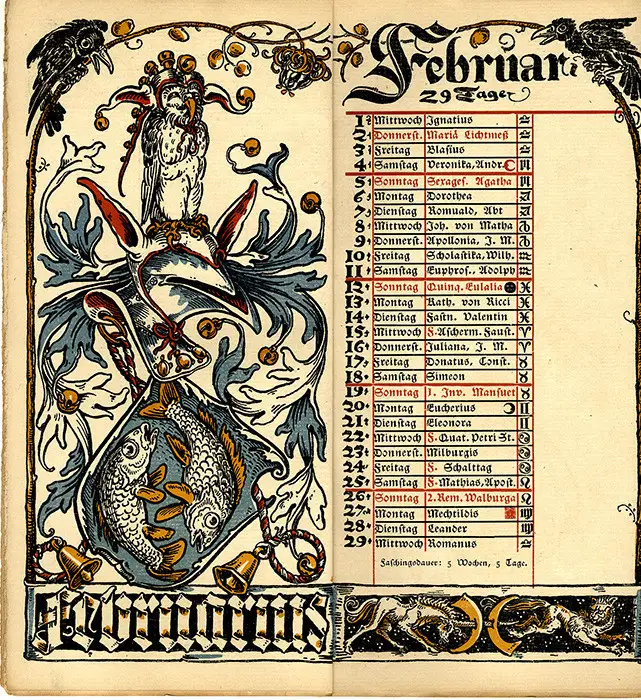 Februar
29 Tage
1. Mittwoch Ignatius
2. Donnerst. Mariä Lichtmeß
3. Freitag Blasius
4. Samstag Veronika, Andr.
5. Sonntag Sexages. Agatha
6. Montag Dorothea
7. Dienstag Romuald, Abt
8. Mittwoch Joh. von Matha
9. Donnerst. Apollonia, J. M.
10. Freitag Scholastika, Wilh.
11. Samstag Euphros., Adolph
12. Sonntag Quinq. Eulalia
13. Montag Kath. von Ricci
14. Dienstag Fastn. Valentin
15. Mittwoch F. Ascherm. Faust.
16. Donnerst. Juliana, J. M.
17. Freitag Donatus, Const.
18. Samstag Simeon
19. Sonntag 1. Inv. Mansuet
20. Montag Eucherius
21. Dienstag Eleonora
22. Mittwoch F. Quat. Petri St.
23. Donnerst. Milburgis
24. Freitag F. Schalttag
25. Samstag F. Mathias, Apost.
26. Sonntag 2. Rem. Walburga
27. Montag Mechtildis
28. Dienstag Leander
29. Mittwoch Romanus
Faschingsdauer: 5 Wochen, 5 Tage.
Februarius